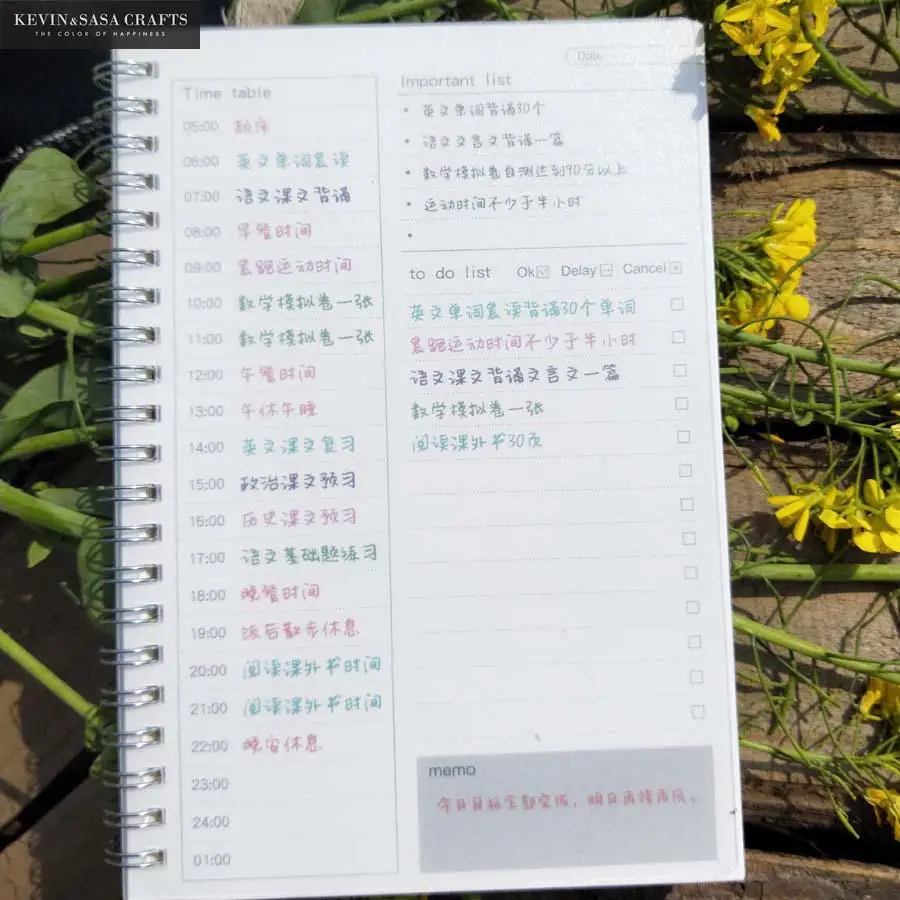 KEVIN&SASA CRAFTS
THE COLOR OF HAPPINESS
Time table
05:00 起床
06:00 英文单词晨读
07:00 语文课文背诵
08:00 早餐时间
09:00 晨跑运动时间
10:00 数学模拟卷一张
11:00 数学模拟卷一张
12:00 午餐时间
13:00 午休午睡
14:00 英文课文复习
15:00 政治课文预习
16:00 历史课文预习
17:00 语文基础题练习
18:00 晚餐时间
19:00 饭后散步休息
20:00 阅读课外书时间
21:00 阅读课外书时间
22:00 晚安休息
23:00
24:00
01:00
Date
Important list
• 英文单词背诵30个
• 语文文言文背诵一篇
• 数学模拟卷自测达到90分以上
• 运动时间不少于半小时
•
to do list Ok Delay Cancel
英文单词晨读背诵30个单词
晨跑运动时间不少于半小时
语文课文背诵文言文一篇
数学模拟卷一张
阅读课外书30页
memo
今日目标全部完成，明日再接再厉。